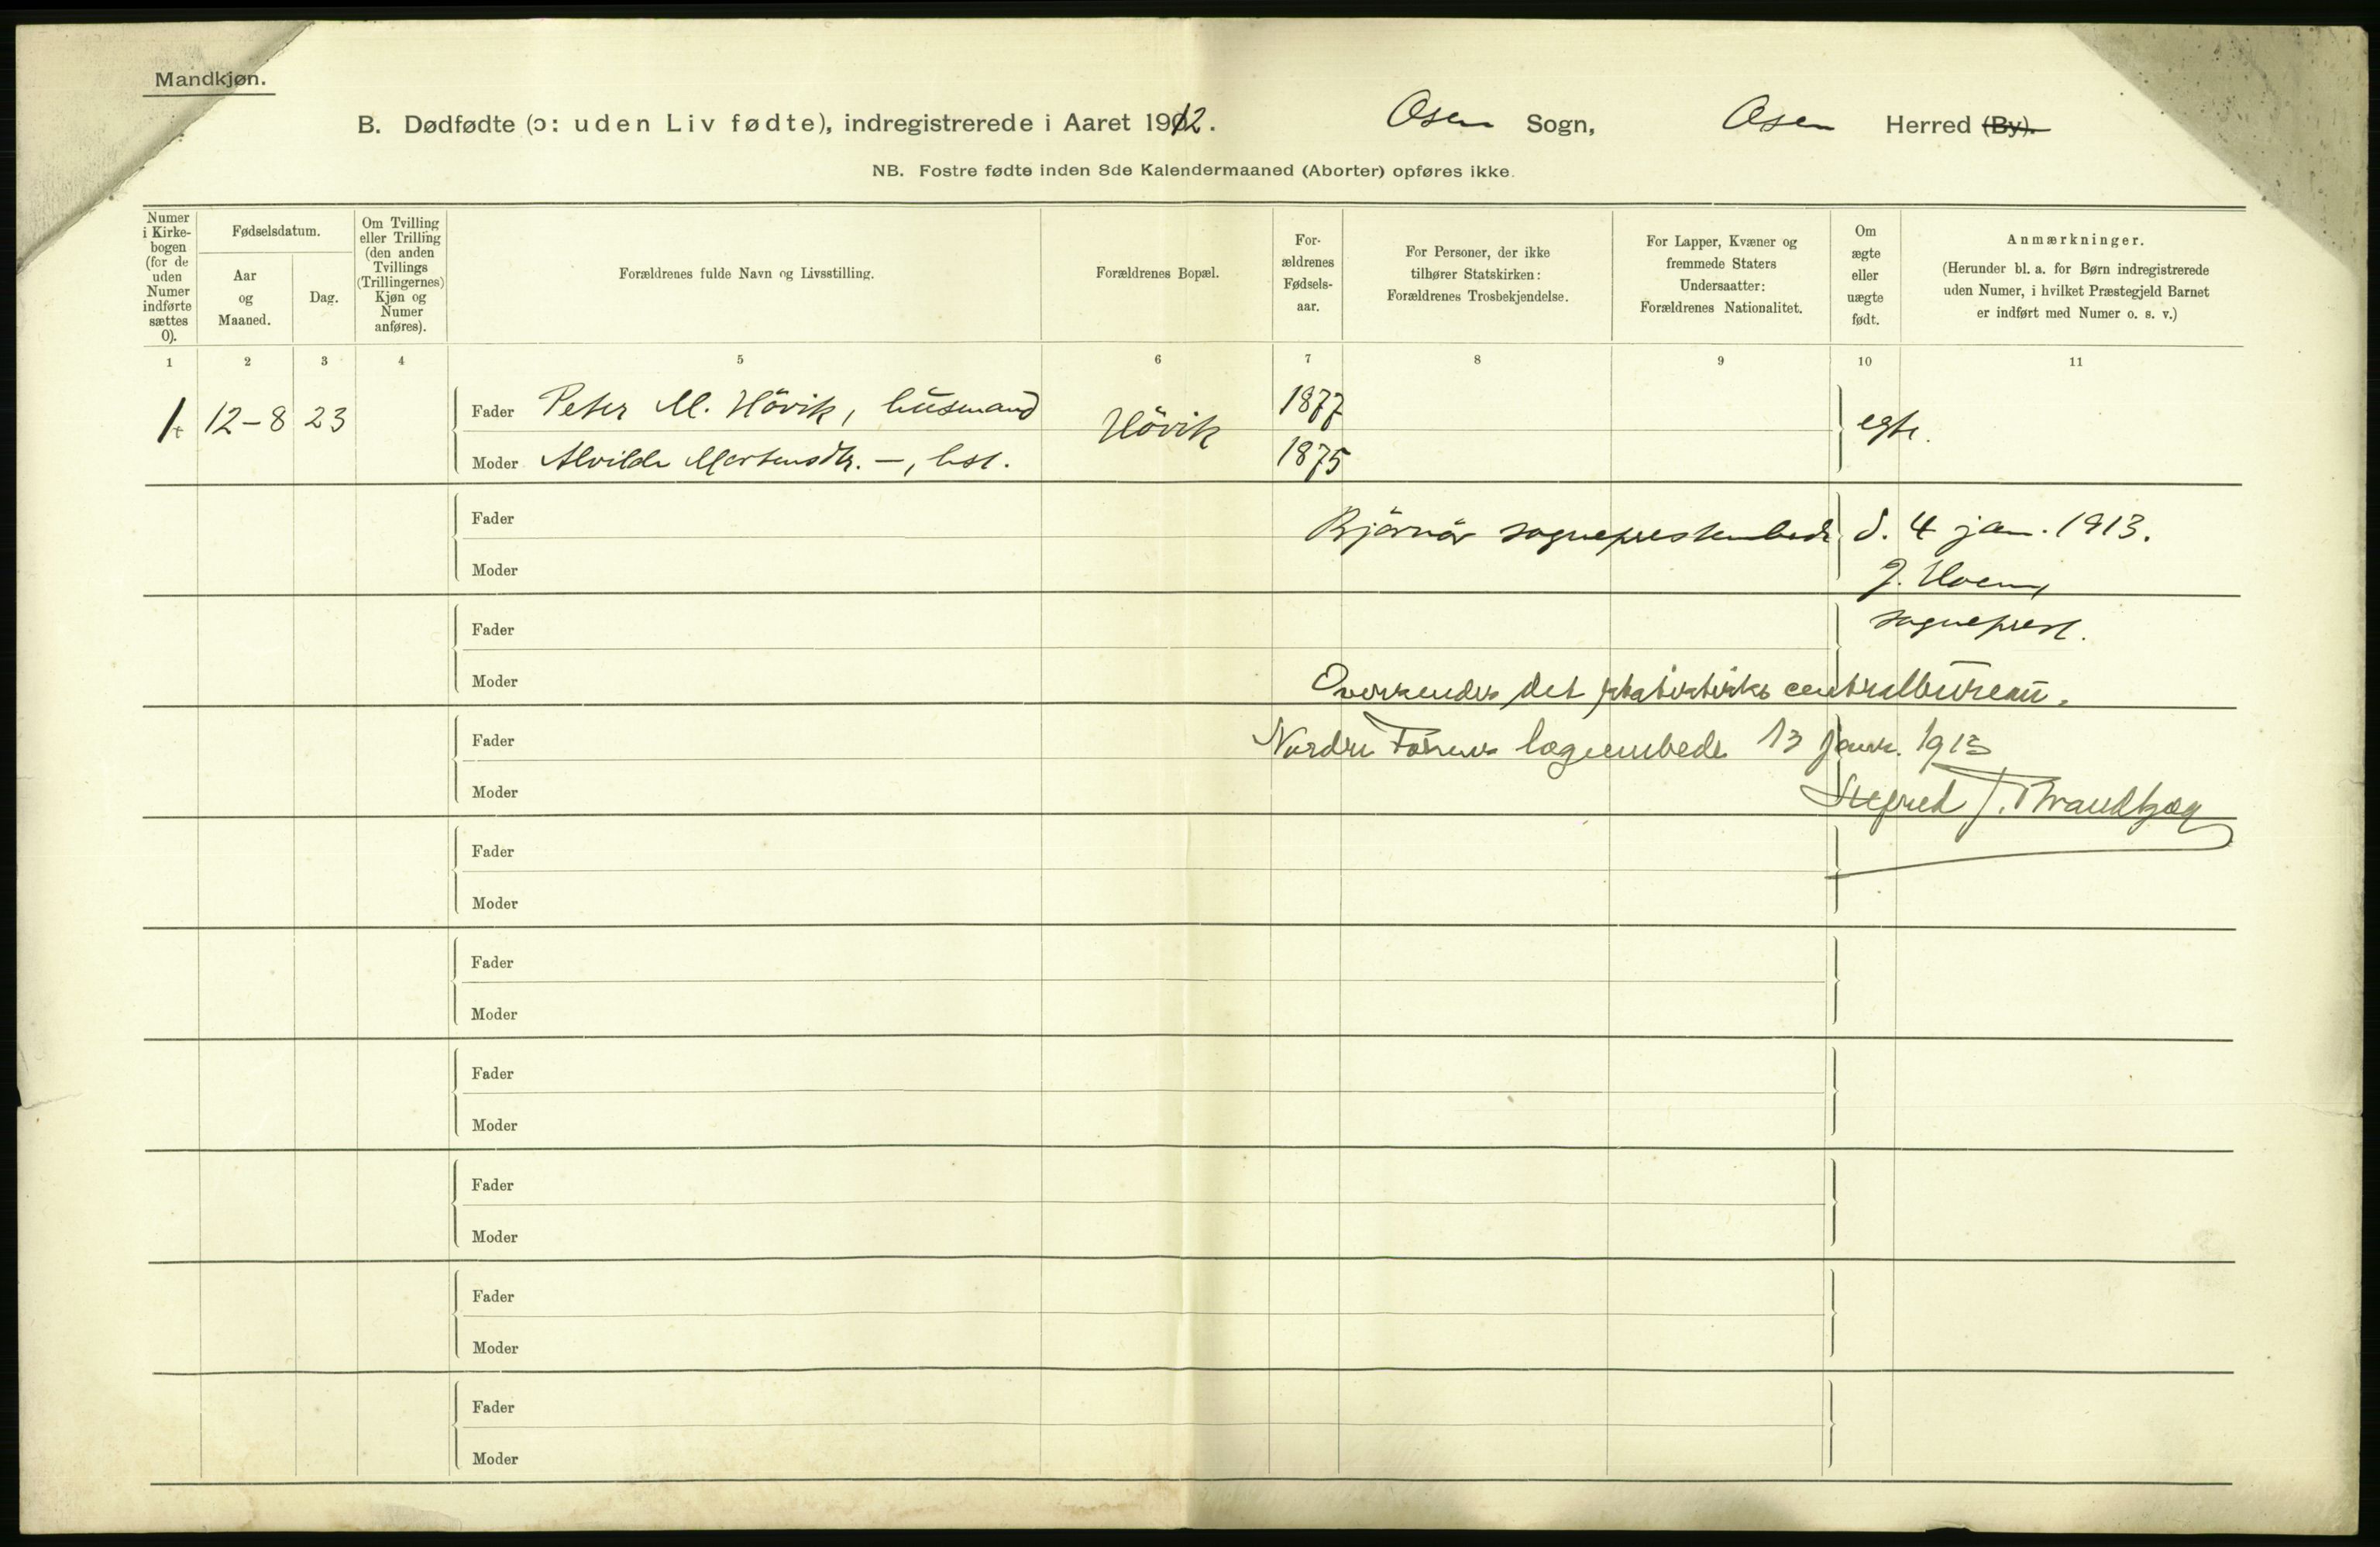 Mandkjøn.
B. Dødfødte (ɔ: uden Liv fødte), indregistrerede i Aaret 1912. Osen Sogn, Osen Herred (By).
NB. Fostre fødte inden 8de Kalendermaaned (Aborter) opføres ikke.
Numer
i Kirke-
bogen
(for de
uden
Numer
indførte
sættes
0).
Fødselsdatum.
Aar
og
Maaned.
Dag.
Om Tvilling
eller Trilling
(den anden
Tvillings
(Trillingernes)
Kjøn og
Numer
anføres).
Forældrenes fulde Navn og Livsstilling.
Forældrenes Bopæl.
For-
ældrenes
Fødsels-
aar.
For Personer, der ikke
tilhører Statskirken:
Forældrenes Trosbekjendelse.
For Lapper, Kvæner og
fremmede Staters
Undersaatter:
Forældrenes Nationalitet.
Om
ægte
eller
uægte
født.
Anmærkninger.
(Herunder bl. a. for Børn indregistrerede
uden Numer, i hvilket Præstegjeld Barnet
er indført med Numer o. s. v.)
1 2 3 4 5 6 7 8 9 10 11
1 12-8 23 Fader Peter M. Hövik, husmand Hövik 1877 egte.
Moder Alvilde Mortensdtr. —, hst. 1875
Fader Björnör sogneprestembede d. 4 jan. 1913.
Moder J. Hoem,
Fader sogneprest.
Moder Oversendes det statistiske centralbureau.
Fader Nordre Fosens lægeembede 13 janr. 1913
Moder
Fader
Moder
Fader
Moder
Fader
Moder
Fader
Moder
Fader
Moder
Fader
Moder